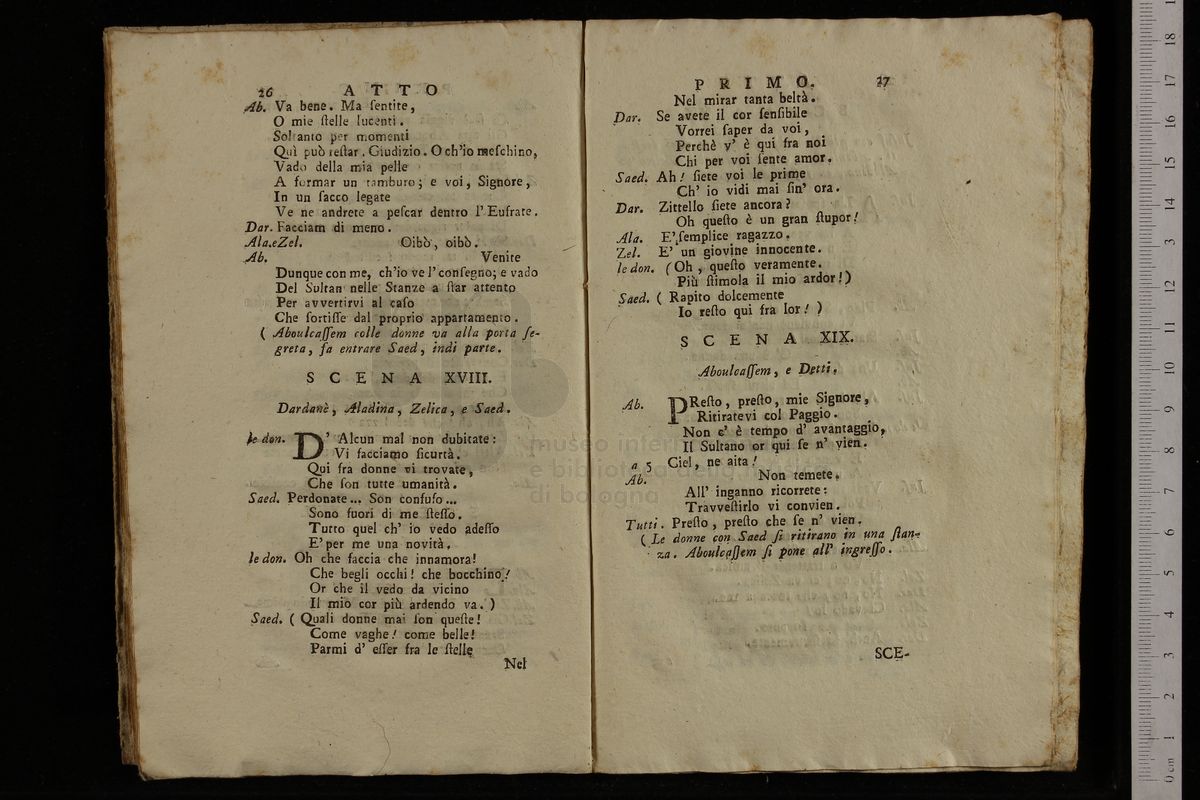 26 ATTO
Ab. Va bene. Ma ſentite,
O mie ſtelle lucenti.
Soltanto per momenti
Quì può reſtar. Giudizio. O ch'io meſchino,
Vado della mia pelle
A formar un tamburo; e voi, Signore,
In un ſacco legate
Ve ne andrete a peſcar dentro l'Eufrate.
Dar. Facciam di meno.
Ala.eZel. Oibò, oibò.
Ab. Venite
Dunque con me, ch'io ve l'conſegno; e vado
Del Sultan nelle Stanze a ſtar attento
Per avvertirvi al caſo
Che ſortiſſe dal proprio appartamento.
( Aboulcaſſem colle donne va alla porta ſe-
greta, fa entrare Saed, indi parte.
SCENA XVIII.
Dardanè, Aladina, Zelica, e Saed.
le don. D' Alcun mal non dubitate:
Vi facciamo ſicurtà.
Qui fra donne vi trovate,
Che ſon tutte umanità.
Saed. Perdonate... Son confuſo...
Sono fuori di me ſteſſo.
Tutto quel ch' io vedo adeſſo
E' per me una novità.
le don. Oh che faccia che innamora!
Che begli occhi! che bocchino!
Or che il vedo da vicino
Il mio cor più ardendo va. )
Saed. ( Quali donne mai ſon queſte!
Come vaghe! come belle!
Parmi d' eſſer fra le ſtelle
Nel
PRIMO. 27
Nel mirar tanta beltà.
Dar. Se avete il cor ſenſibile
Vorrei ſaper da voi,
Perchè v' è qui fra noi
Chi per voi ſente amor.
Saed. Ah! ſiete voi le prime
Ch' io vidi mai ſin' ora.
Dar. Zittello ſiete ancora?
Oh queſto è un gran ſtupor!
Ala. E' ſemplice ragazzo.
Zel. E' un giovine innocente.
le don. (Oh, queſto veramente.
Più ſtimola il mio ardor!)
Saed. ( Rapito dolcemente
Io reſto qui fra lor! )
SCENA XIX.
Aboulcaſſem, e Detti.
Ab. PReſto, preſto, mie Signore,
Ritiratevi col Paggio.
Non c' è tempo d' avantaggio,
Il Sultano or qui ſe n' vien.
a 5 Ciel, ne aita!
Ab. Non temete.
All' inganno ricorrete:
Travveſtirlo vi convien.
Tutti. Preſto, preſto che ſe n' vien.
( Le donne con Saed ſi ritirano in una ſtan-
za. Aboulcaſſem ſi pone all' ingreſſo.
SCE-